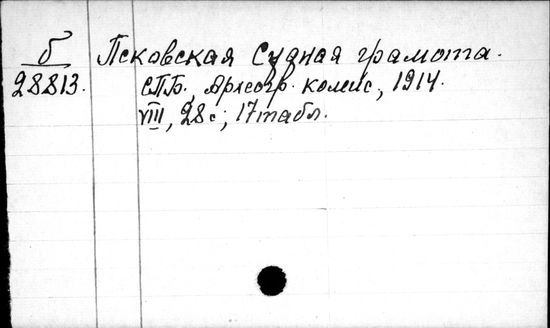 б
28813.
Псковская Судная грамота.
СПБ, Археогр. комис, 1914.
VIII, 28с; 17 табл.